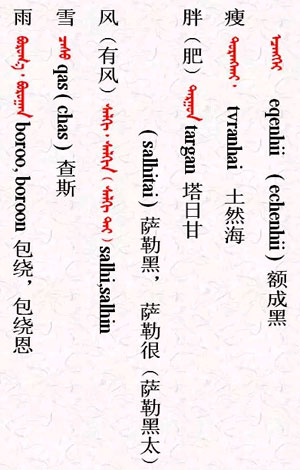 雨 ᠪᠣᠷᠣᠭ᠎ᠠ᠂ ᠪᠣᠷᠣᠭᠠᠨ boroo, boroon 包绕，包绕恩
雪 ᠴᠠᠰᠤ qas ( chas ) 查斯
风（有风）ᠰᠠᠯᠬᠢ᠂ ᠰᠠᠯᠬᠢᠨ ( ᠰᠠᠯᠬᠢ ᠲᠠᠢ ) salhi,salhin
( salhitai ) 萨勒黑， 萨勒很（萨勒黑太）
胖（肥）ᠲᠠᠷᠭᠤᠨ targan 塔日甘
瘦 ᠲᠤᠷᠠᠩᠬᠠᠢ᠂ tvranhai 土然海
ᠡᠴᠡᠩᠬᠡᠢ eqenhii ( echenhii ) 额成黑